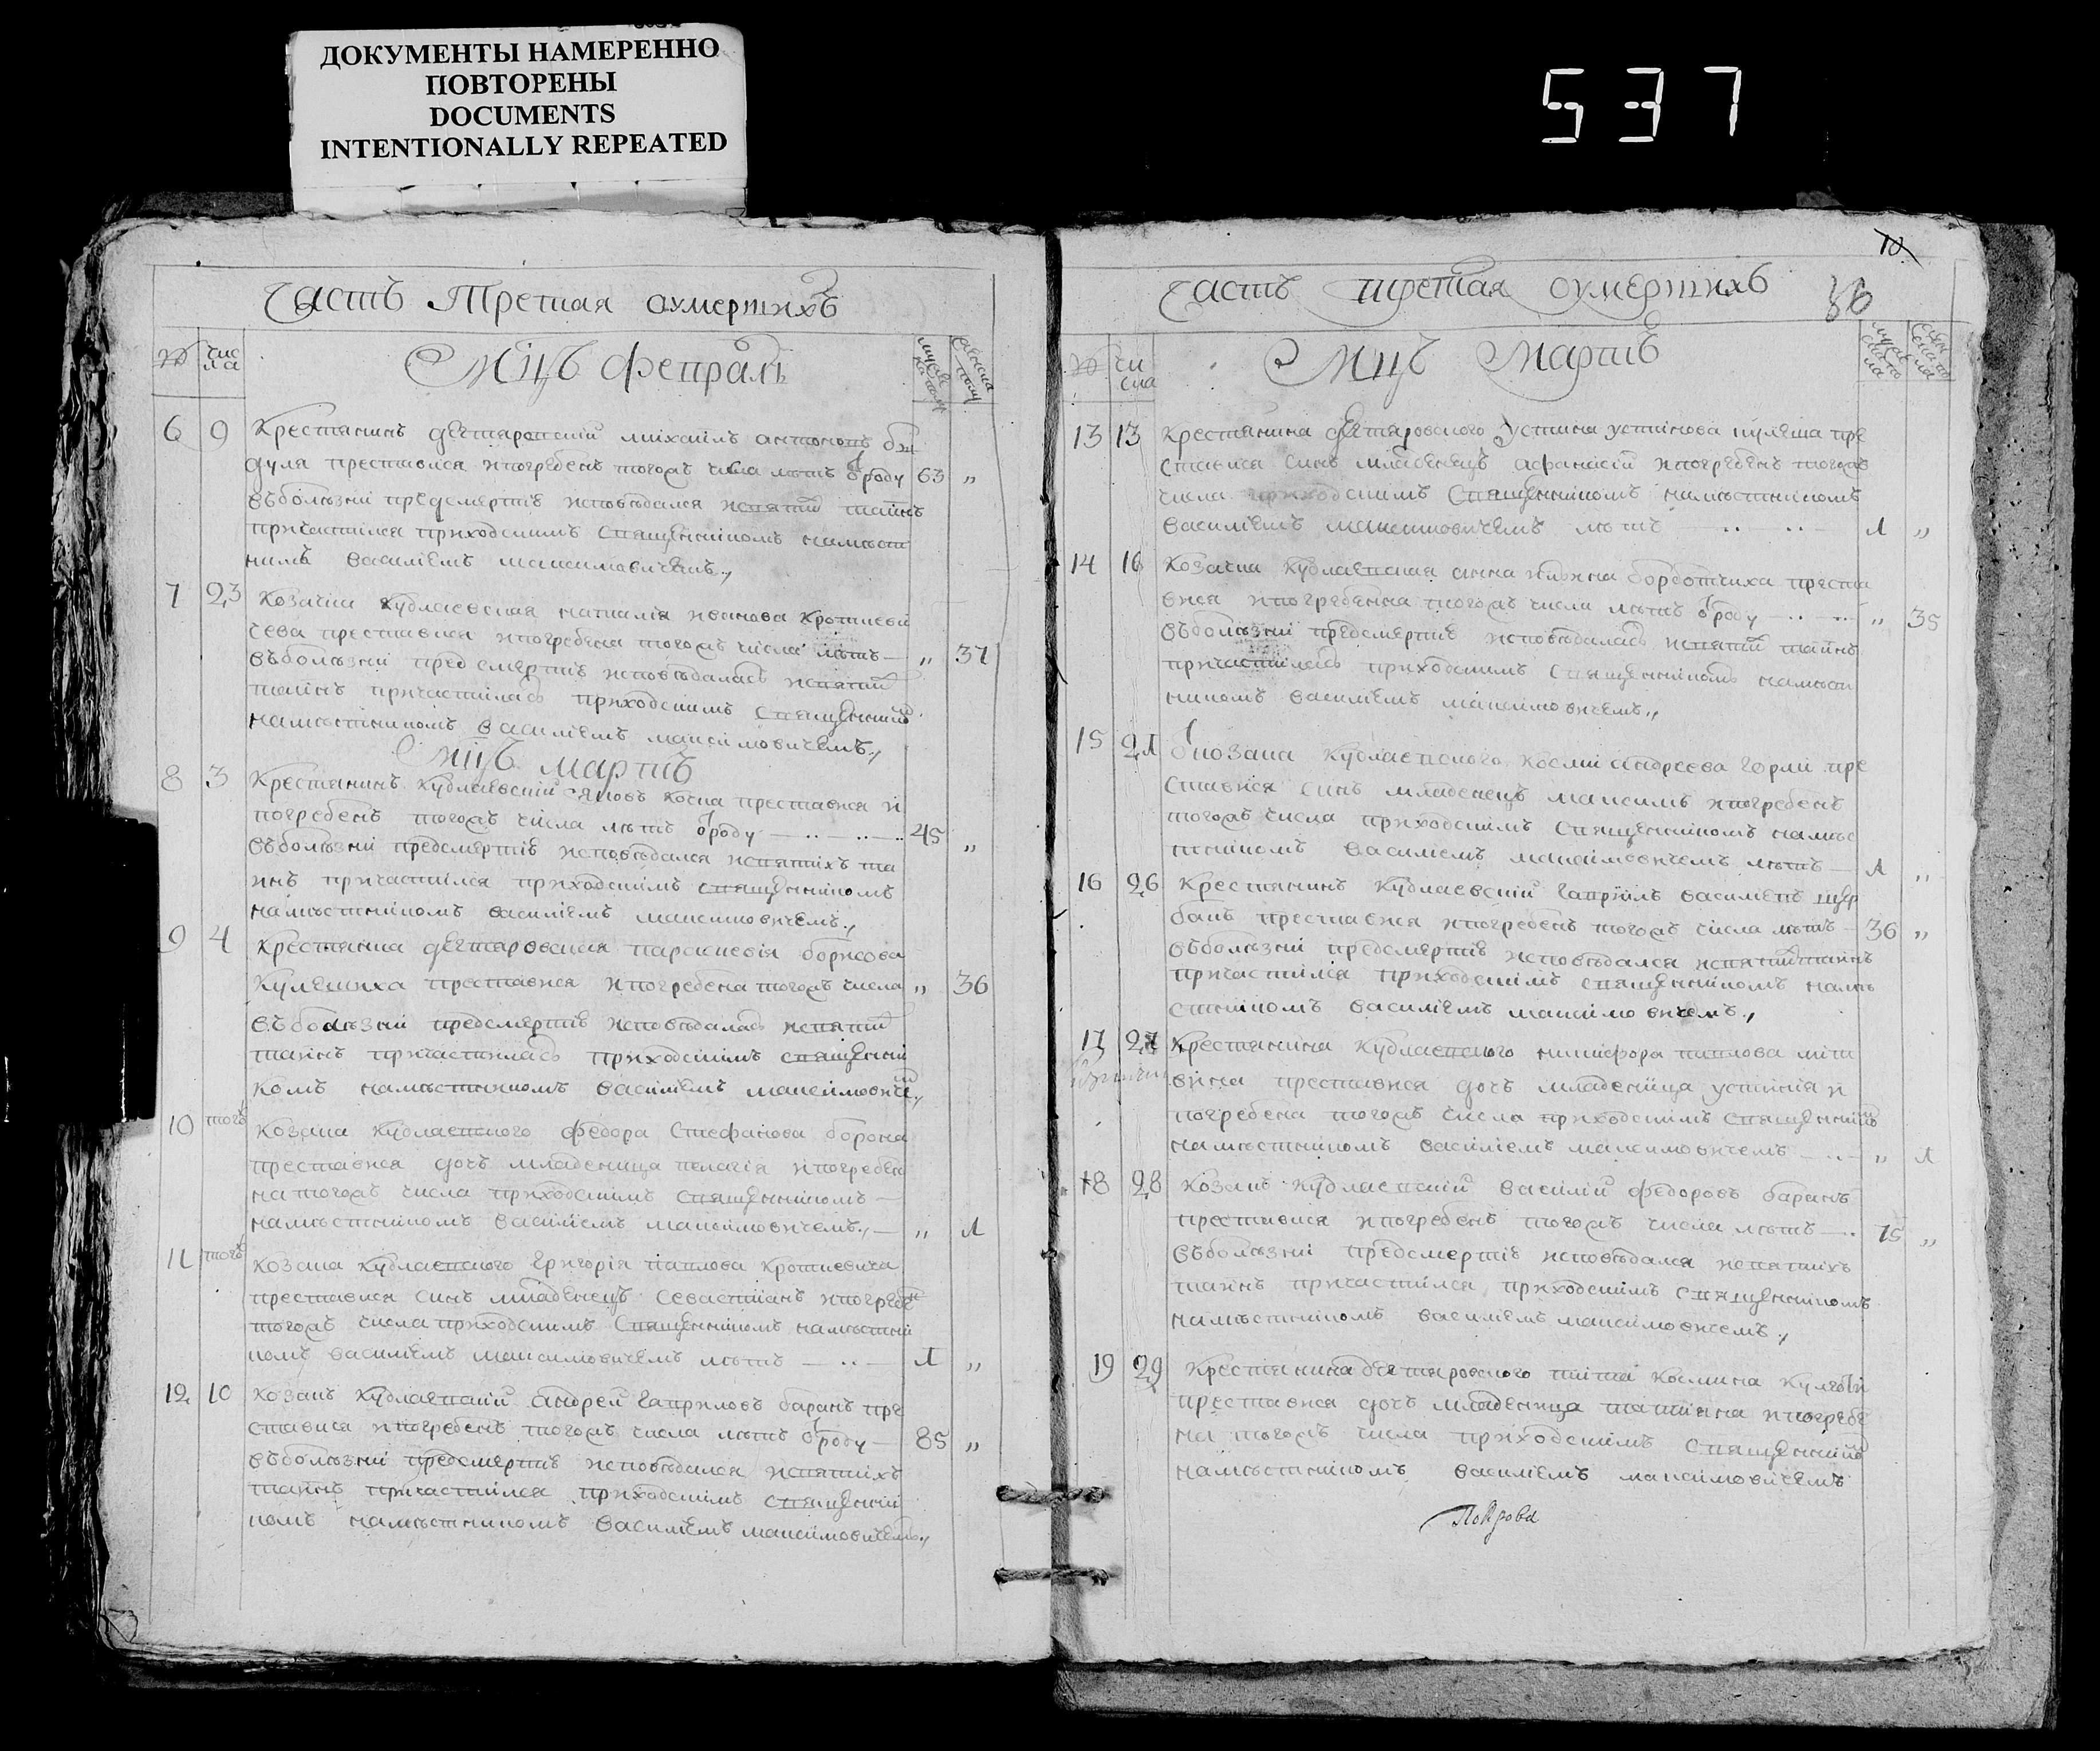 ДОКУМЕНТЫ НАМЕРЕННО
ПОВТОРЕНЫ
DOCUMENTS
INTENTIONALLY REPEATED
537
Часть Третая оумертихъ
№ чис
ла
Мцъ Февралъ
6 9 Крестянинъ Дегтяровский михаилъ антоновъ
дуля преставися и погребенъ тогожъ числа лѣтъ ѿроду 63 „
Въболѣзни предсмертіе исповѣдался исвятих таинъ
причастился приходскимъ Священникомъ намѣст
никъ Василіемъ максимовичемъ.,
7 23 Козачка Кублаевская наталія иванова Кроткеви
чева преставися и погребена тогожъ числа лѣтъ — „ 37
Въболѣзни предсмертіе исповѣдаласъ исвятих
таинъ причастиласъ приходскимъ Священникоⷨ
намѣстникомъ Василіемъ максимовичемъ.,
Мцъ Мартъ
8 3 Крестянинъ Кублаевский яковъ коса преставися и
погребенъ тогожъ числа лѣтъ ѿроду 45 „
Въболѣзни предсмертіе исповѣдался исвятихъ та
инъ причастился приходскимъ священникомъ
намѣстникомъ василіемъ максимовичемъ.,
9 4 Крестянка Дегтяровская параскевія борисова
Кулешиха преставися и погребена тогожъ числа „ 36
Въболѣзни предсмертіе исповѣдаласъ исвятих
таинъ причастиласъ приходскимъ священни
комъ намѣстникомъ Василіемъ максимовичеⷨ.,
10 тогоⷤ Козака Кублаевского Федора Стефанова борона
преставися дочъ младеница пелагія и погребен
на тогожъ числа приходскимъ священникомъ —
намѣстникомъ Василіемъ максимовичемъ., — „ 1
11 тогоⷤ Козака Кублаевского Григорія павлова Кроткевича
преставися синъ младенецъ Севастіанъ и погребеⷩ
тогожъ числа приходскимъ Священникомъ намѣстни
комъ Василіемъ максимовичемъ лѣтъ — 1 „
12 10 Козакъ Кублаевский Андрей Гавриловъ баранъ пре
ставися и погребенъ тогожъ числа лѣтъ ѿроду — 85 „
Въболѣзни предсмертіе исповѣдался исвятихъ
таинъ причастился приходскимъ священни
комъ намѣстникомъ Василіемъ максимовичемъ.,
10
36
Часть третая оумертихъ
№ чи
сла
Мцъ Мартъ
13 13 Крестянина Дегтяровского Устина устинова кулеша пре
ставися синъ младенецъ афанасій и погребенъ тогожъ
числа приходскимъ Священникомъ намѣстникомъ
Василіемъ максимовичемъ лѣтъ 1 „
14 16 Козачка Кублаевская анна борботчиха преста
вися и погребенна тогожъ числа лѣтъ ѿроду „ 35
Въболѣзни предсмертіе исповѣдаласъ исвятих таинъ
причастиласъ приходскимъ священникомъ намѣст
никомъ Василіемъ максимовичемъ.,
15 21 Козака Кублаевского Косми Андреева Горли пре
ставися синъ младенецъ максимъ и погребенъ
тогожъ числа приходскимъ Священникомъ намѣс
тникомъ Василіемъ максимовичемъ лѣтъ — 1 „
16 26 Крестянинъ Кублаевский Гавріилъ Василіевъ щер
бакъ преставися и погребенъ тогожъ числа лѣтъ — 36 „
Въболѣзни предсмертіе исповѣдался исвятихтаинъ
причастился приходскимъ священникомъ намѣ
стникомъ Василіемъ максимовичемъ.,
17 27 Крестянина Кублаевского никифора павлова
преставися дочъ младеница устинія и
погребена тогожъ числа приходскимъ Священникоⷨ
намѣстникомъ Василіемъ максимовичемъ — „ 1
18 28 Козакъ Кублаевский Василій Федоровъ баранъ
преставися и погребенъ тогожъ числа лѣтъ — 75 „
Въболѣзни предсмертіе исповѣдался исвятихъ
таинъ причастился приходскимъ Священникомъ
намѣстникомъ Василіемъ максимовичемъ.,
19 29 Крестянина Дегтяровского тита космина
преставися дочъ младеница татіяна и погребе
на тогожъ числа приходскимъ Священникоⷨ
намѣстникомъ Василіемъ максимовичемъ